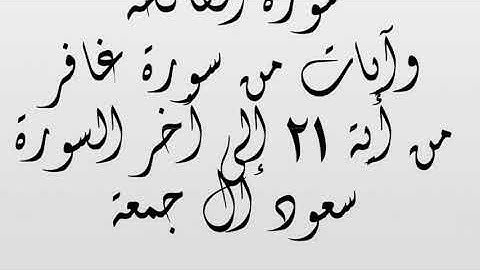 سورة الفاتحة
وآيات من سورة غافر
من أية ٢١ إلى آخر السورة
سعود آل جمعة